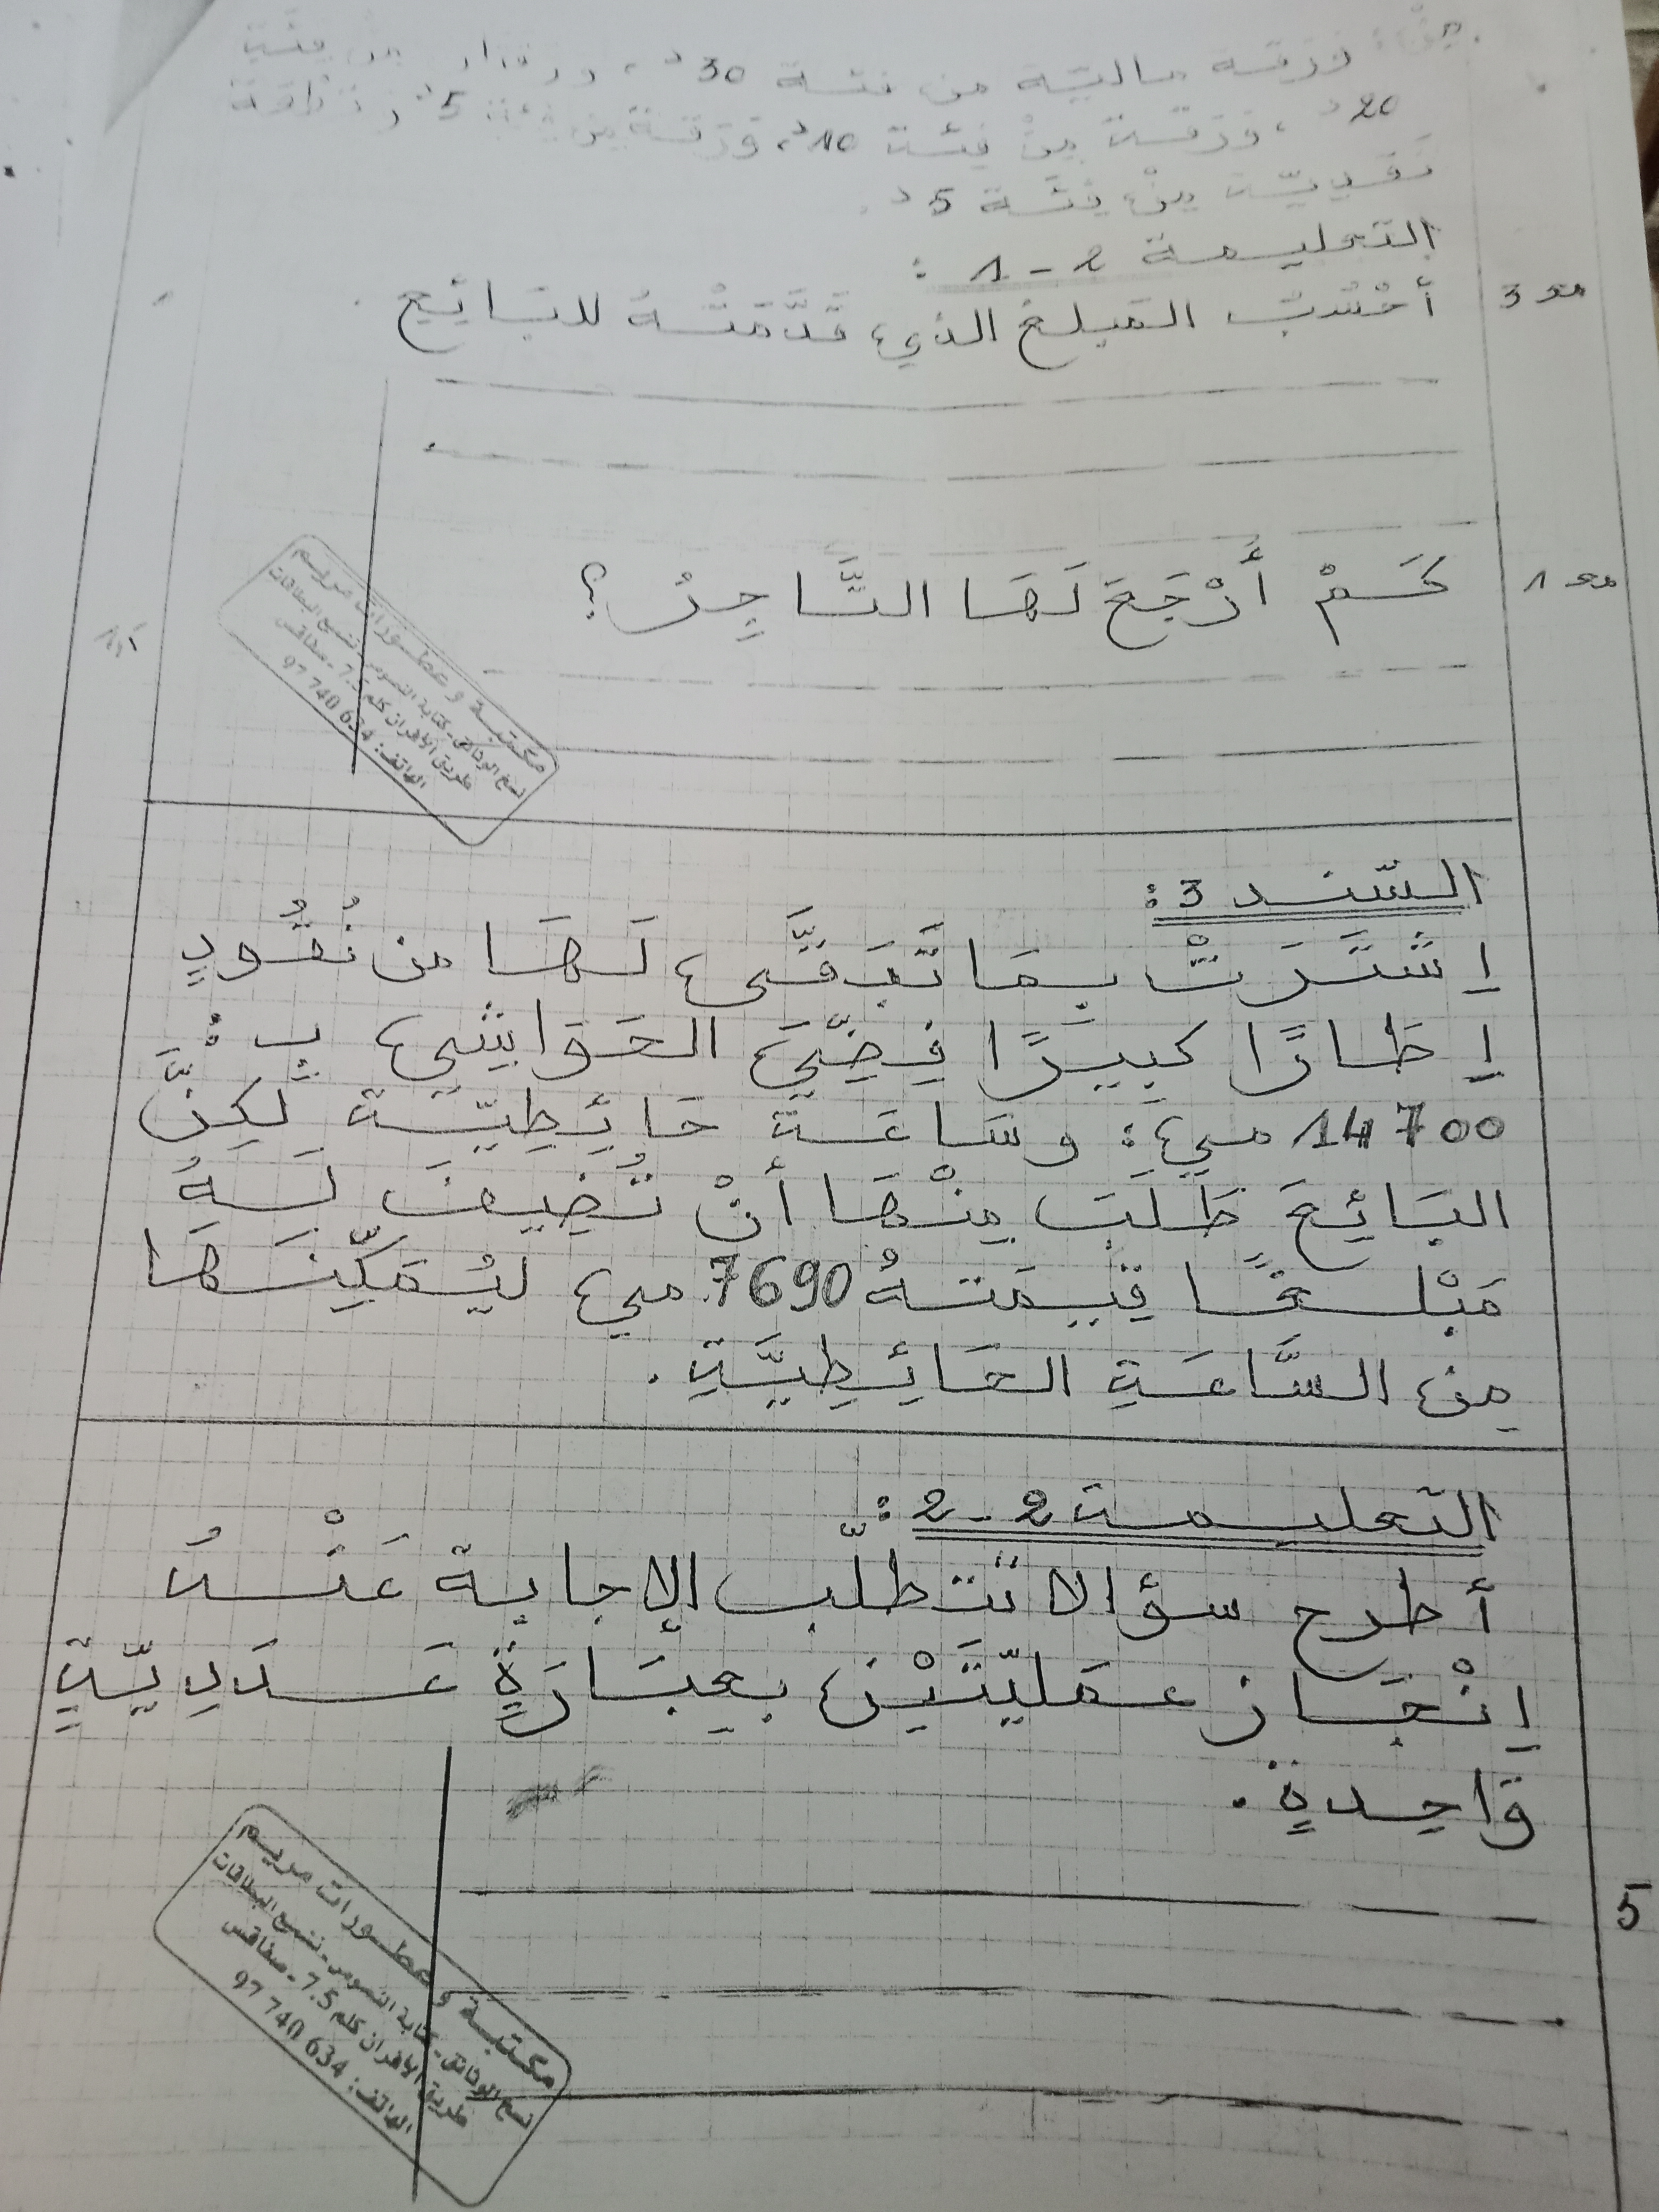 ورقة ماليّة من فئة 30د، و
20د، ورقة من فئة 10د، ورقة من فئة 5د و قطعة
نقديّة من فئة 5د.
التعليمة 2-1 :
مع3
أَحْسُبُ المَبلغ الذي قَدَّمَتْهُ للبَائِع .
كَمْ أَرْجَعَ لَهَا التَّاجِرُ ؟
مع1
مكتبة و عطورات مريم
نسخ الوثائق - كتابة النصوص - نسخ البطاقات
طريق الأفران كلم 7.5 - صفاقس
الهاتف: 97 740 634
السّند 3 :
اِشْتَرَتْ بِمَا تَبَقَّى لَهَا من نُقُودٍ
إِطَارًا كبِيرًا فِضِّيَّ الحَوَاشِي بِـ :
14700 مي؛ وسَاعَة حَائِطِيّة لَكِنَّ
البَائِعَ طَلَبَ مِنْهَا أَنْ تُضِيفَ لَهُ
مَبْلَغًا قِيمَتهُ 7690 مي لِيُمَكِّنَهَا
مِنَ السَّاعَةِ الحَائِطِيَّةِ .
التعليمة 2-2 :
أطرح سؤالا تتطلّب الإجابة عَنْهُ
إِنْجَاز عمليّتَيْن بِعِبَارَةٍ عَدَدِيّةٍ
وَاحِدةٍ .
5
مكتبة و عطورات مريم
نسخ الوثائق - كتابة النصوص - نسخ البطاقات
طريق الأفران كلم 7.5 - صفاقس
الهاتف: 97 740 634